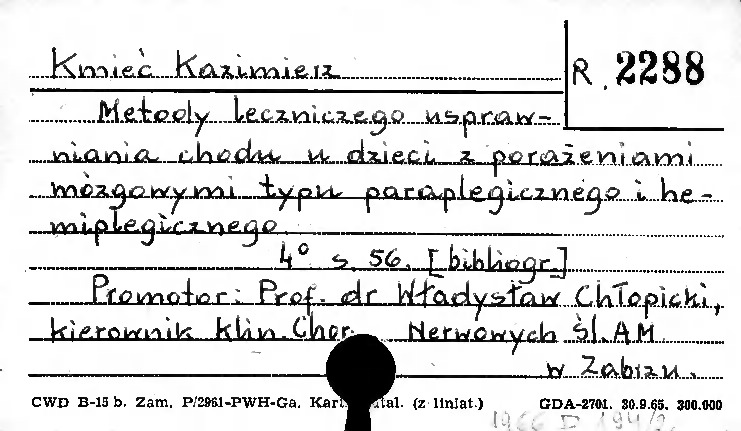 Kmieć Kazimierz
R. 2288
Metody leczniczego uspraw-
niania chodu u dzieci z porażeniami
mózgowymi typu paraplegicznego i he-
miplegicznego
4° s. 56. [bibliogr.]
Promotor: Prof. dr Władysław Chłopicki,
kierownik Klin. Chor. Nerwowych Śl. AM
w Zabrzu.
CWD B-15 b. Zam. P/2961-PWH-Ga. Kart. tal. (z liniat.) GDA-2701. 30.9.65. 300.000
1966 D